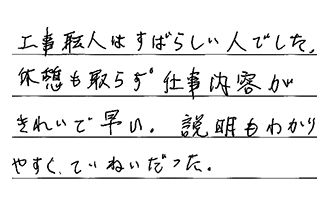 工事職人はすばらしい人でした。
休憩も取らず仕事内容が
きれいで早い。説明もわかり
やすく、ていねいだった。